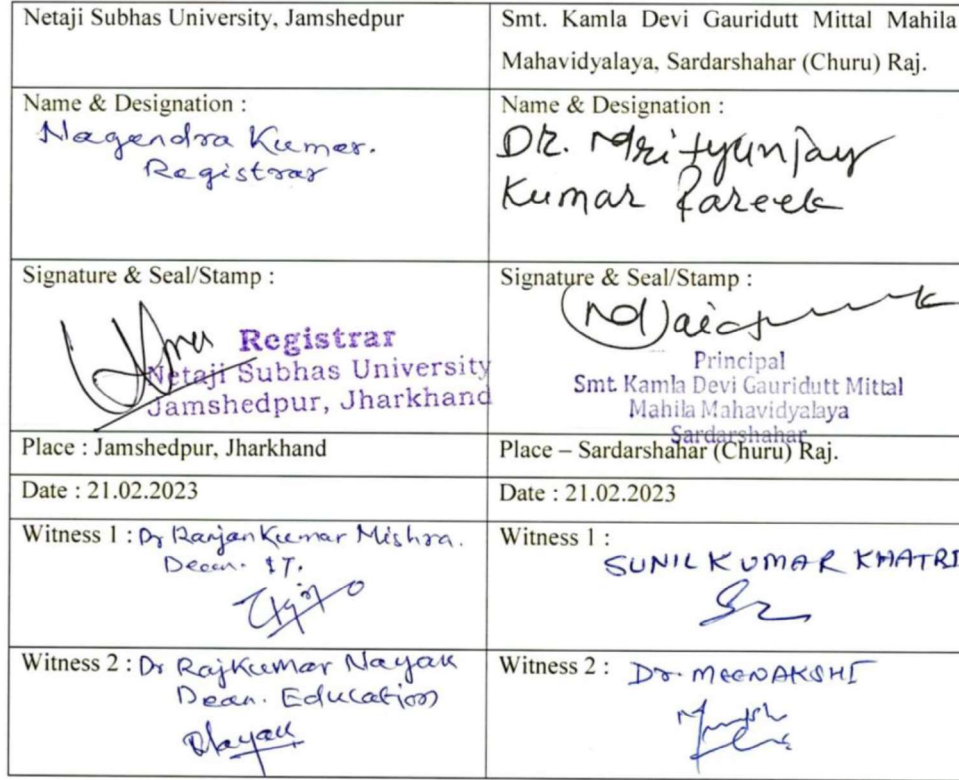 Netaji Subhas University, Jamshedpur
Smt. Kamla Devi Gauridutt Mittal Mahila
Mahavidyalaya, Sardarshahar (Churu) Raj.
Name & Designation :
Nagendra Kumar.
Registrar
Name & Designation :
DR. Mrityunjay
Kumar Pareek
Signature & Seal/Stamp :
Registrar
Netaji Subhas University
Jamshedpur, Jharkhand
Signature & Seal/Stamp :
Principal
Smt. Kamla Devi Gauridutt Mittal
Mahila Mahavidyalaya
Sardarshahar
Place : Jamshedpur, Jharkhand
Place – Sardarshahar (Churu) Raj.
Date : 21.02.2023
Date : 21.02.2023
Witness 1 : Dr Ranjan Kumar Mishra.
Dean. IT.
Witness 1 :
SUNIL KUMAR KHATRI
Witness 2 : Dr Rajkumar Nayak
Dean. Education
Nayak
Witness 2 : Dr. MEENAKSHI